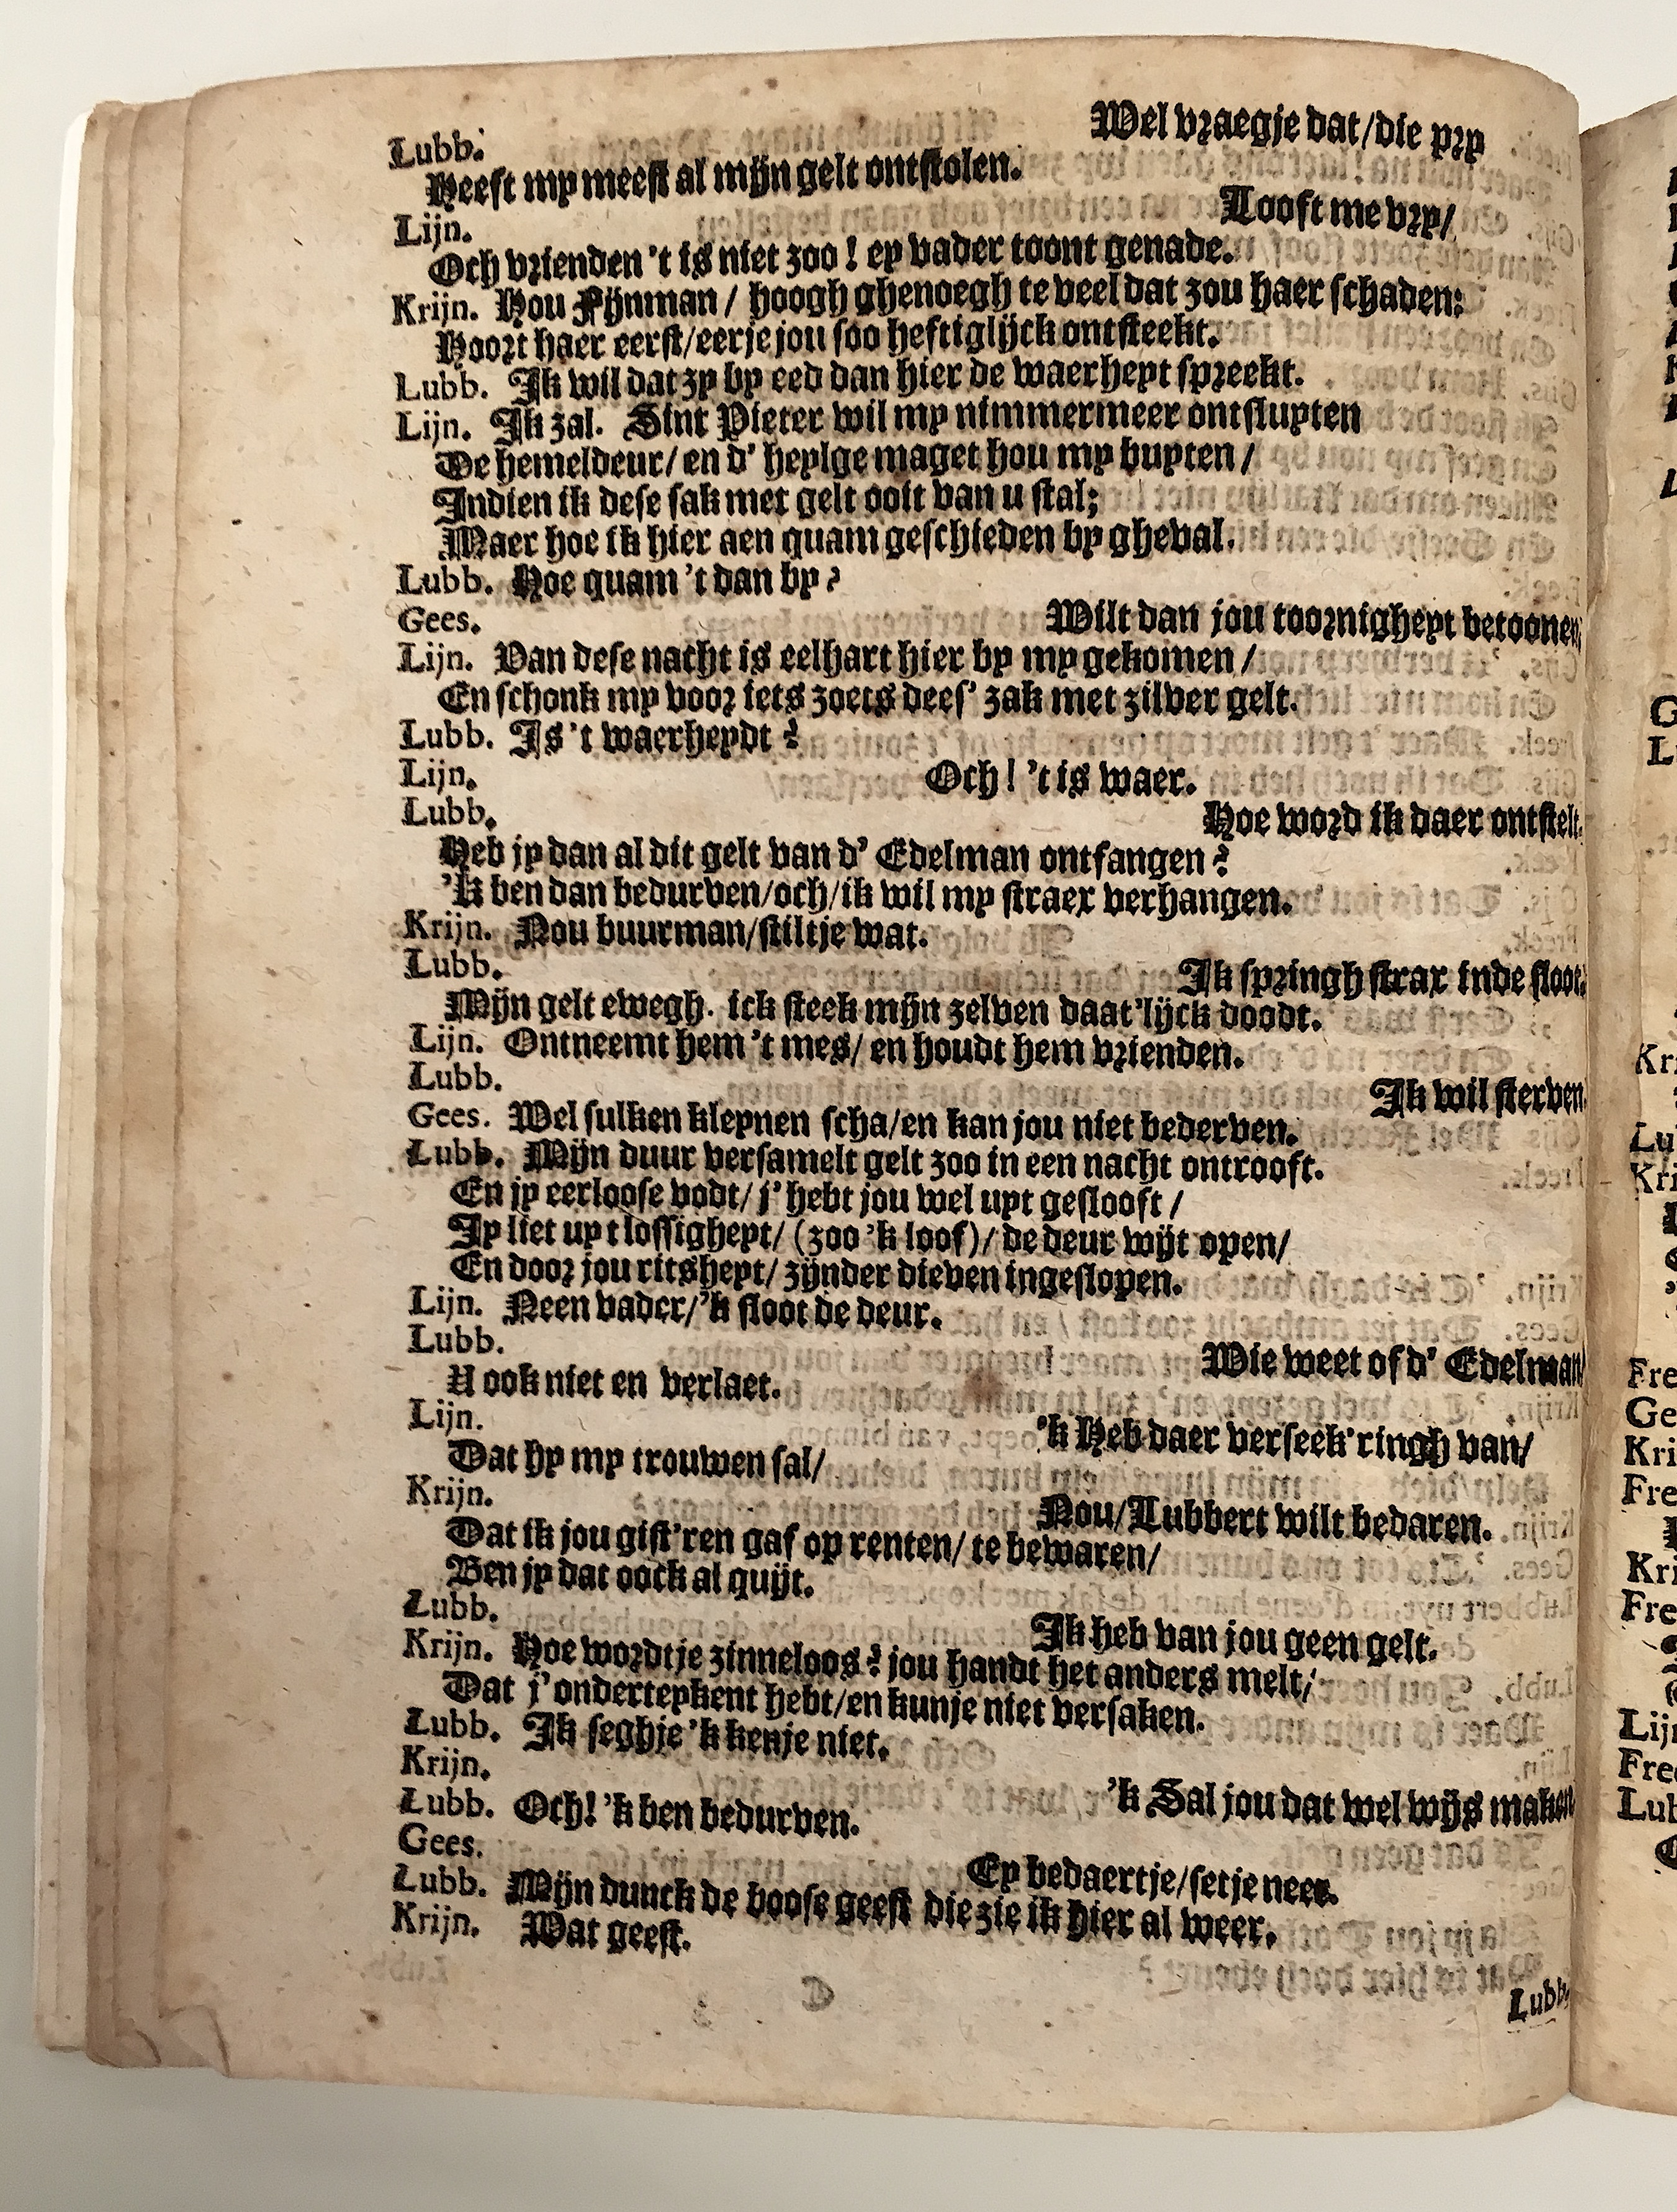 Lubb. Wel vraegje dat/die pry
Heeft my meest al mijn gelt ontstolen.
Lijn. Looft me vry/
Och vrienden 't is niet zoo! ey vader toont genade.
Krijn. Hou Fijnman/ hoogh ghenoegh te veel dat zou haer schaden:
Hoort haer eerst/eerje jou soo heftiglijck ontsteekt.
Lubb. Ik wil dat zy by eed dan hier de waerheyt spreekt.
Lijn. Ik zal. Sint Pieter wil my nimmermeer ontsluyten
De hemeldeur/ en d' heylge maget hou my buyten/
Indien ik dese sak met gelt ooit van u stal;
Maer hoe ik hier aen quam geschieden by gheval.
Lubb. Hoe quam 't dan by?
Gees. Wilt dan jou toornigheyt betoonen
Lijn. Van dese nacht is eelhart hier by my gekomen/
En schonk my voor iets zoets dees' zak met zilver gelt.
Lubb. Is 't waerheydt?
Lijn. Och! 't is waer.
Lubb. Hoe word ik daer ontstelt.
Heb jy dan al dit gelt van d' Edelman ontfangen?
'k ben dan bedurven/och/ik wil my straex verhangen.
Krijn. Nou buurman/stiltje wat.
Lubb. Ik springh strax inde sloot.
Mijn gelt ewegh. ick steek mijn zelven daat'lijck doodt.
Lijn. Ontneemt hem 't mes/ en houdt hem vrienden.
Lubb. Ik wil sterven
Gees. Wel sulken kleynen scha/en kan jou niet bederven.
Lubb. Mijn duur versamelt gelt zoo in een nacht ontrooft.
En jy eerloose vodt/ j' hebt jou wel uyt geslooft/
Jy liet uyt lossigheyt/ (zoo 'k loof)/ de deur wijt open/
En door jou ritsheyt/ zijnder dieven ingeslopen.
Lijn. Neen vader/'k sloot de deur.
Lubb. Wie weet of d' Edelman
U ook niet en verlaet.
Lijn. 'k Heb daer verseek'ringh van/
Dat hy my trouwen sal/
Krijn. Nou/Lubbert wilt bedaren.
Dat ik jou gist'ren gaf op renten/ te bewaren/
Ben jy dat oock al quijt.
Lubb. Ik heb van jou geen gelt.
Krijn. Hoe wordtje zinneloos? jou handt het anders melt/
Dat j' onderteykent hebt/en kunje niet versaken.
Lubb. Ik seghje 'k kenje niet.
Krijn. 'k Sal jou dat wel wijs maken
Lubb. Och! 'k ben bedurven.
Gees. Ey bedaertje/setje neer.
Lubb. Mijn dunck de boose geest die zie ik hier al weer.
Krijn. Wat geest.
Lubb.
G
L
Kr
Lu
Kri
Fre
Ge
Kri
Fre
Kri
Fre
Lij
Fre
Lub